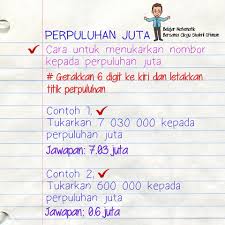 PERPULUHAN JUTA
Belajar Matematik
Bersama Cikgu
Cara untuk menukarkan nombor
kepada perpuluhan juta
# Gerakkan 6 digit ke kiri dan letakkan
titik perpuluhan
Contoh 1,
Tukarkan 7 030 000 kepada
perpuluhan juta
Jawapan: 7.03 juta
Contoh 2,
Tukarkan 600 000 kepada
perpuluhan juta
Jawapan: 0.6 juta